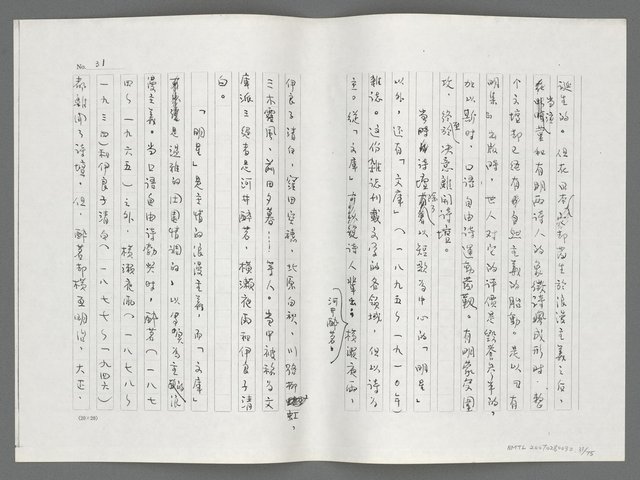 誕生的。但在日本象却產生於浪漫主義之後，
當泣菫和有明兩詩人的象徵詩風成形時，整
個文壇却已經有自然主義的胎動。是以日有
明集』出版時，世人對它的評價是毀譽參半的，
加以斯時，口語自由詩運動萌觀。有明蒙受圍
攻，終至決意離開詩壇。
當時的詩壇除了以短歌為中心的「明星」
以外，還有「文庫」（一八九五～一九一〇年）
雜誌。這份雜誌刊載文學的各領域，但以詩為
主。從「文庫」詩人輩出，橫瀨夜雨，
河井醉茗、
伊良子清白，窪田空穗，北原白秋，川路柳虹，
三木露風，前田夕暮……等人。當中被稱為文
庫派三經者是河井醉茗，橫瀨夜雨和伊良子清
白。
「明星」是主情的浪漫主義，而「文庫」
是溫雅的田園情調的，以傷感為主的浪
漫主義。當口語自由詩勃興時，醉茗（一八七
四～一九六五）之外，橫瀨夜雨（一八七八～
一九三四）和伊良子清白（一八七七～一九四六）
都離開了詩壇，但，醉茗却橫亙明治、大正、
No. 31
(20×20)
NMTL 20070280032 31/75